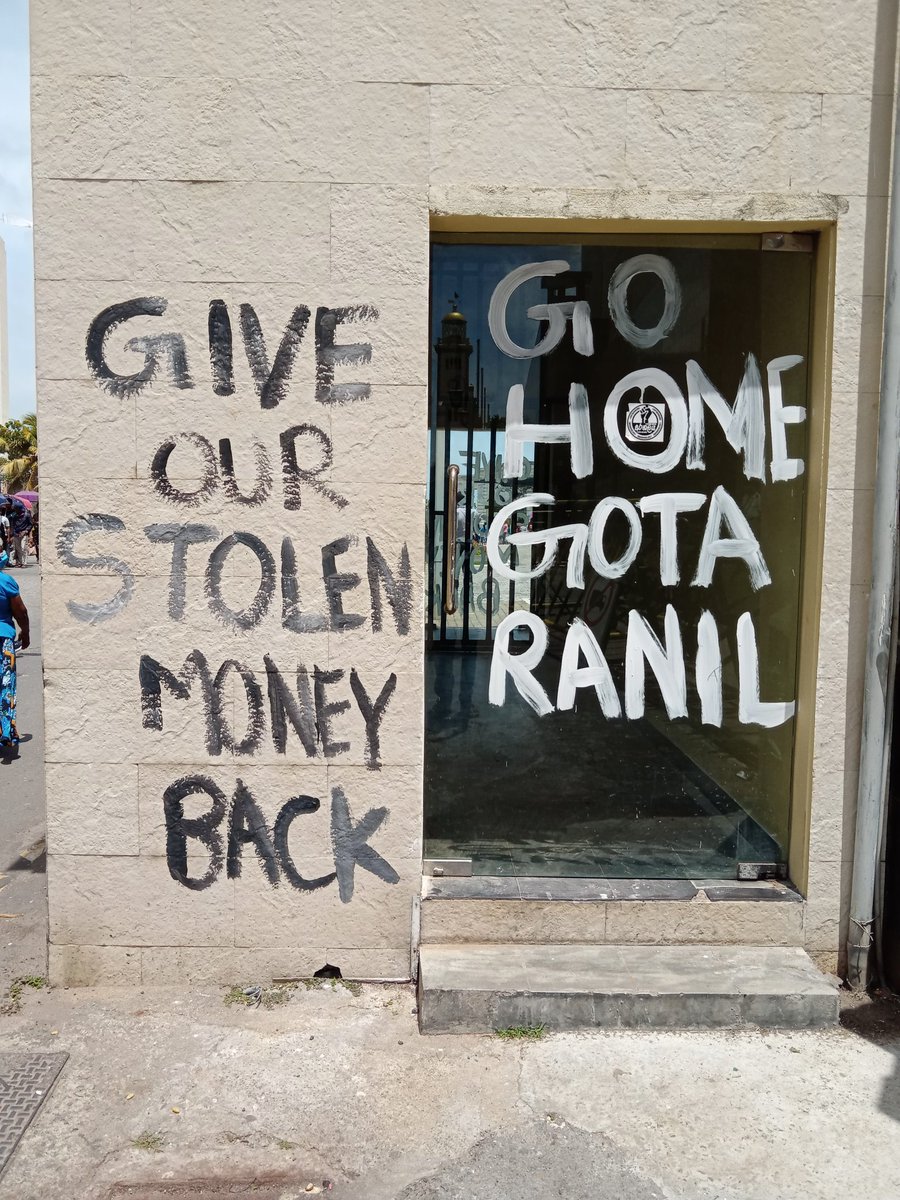 GIVE
OUR
STOLEN
MONEY
BACK
GO
HOME
GOTA
RANIL